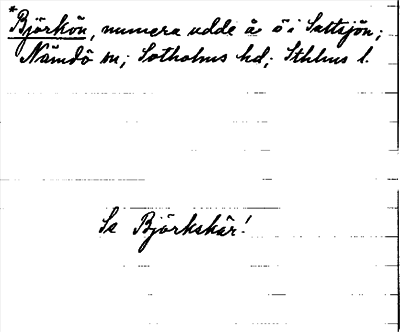 *
Björkön, numera udde å ö i Saltsjön;
Nämdö sn; Sotholms hd; Sthlms l.
Se Björkskär!